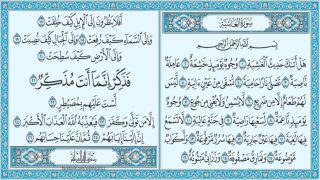 سُورَةُ الغَاشِيَةِ
بِسْمِ اللَّهِ الرَّحْمَٰنِ الرَّحِيمِ
هَلْ أَتَاكَ حَدِيثُ الْغَاشِيَةِ ۝ وُجُوهٌ يَوْمَئِذٍ خَاشِعَةٌ ۝ عَامِلَةٌ
نَاصِبَةٌ ۝ تَصْلَىٰ نَارًا حَامِيَةً ۝ تُسْقَىٰ مِنْ عَيْنٍ آنِيَةٍ ۝ لَيْسَ
لَهُمْ طَعَامٌ إِلَّا مِنْ ضَرِيعٍ ۝ لَا يُسْمِنُ وَلَا يُغْنِي مِنْ جُوعٍ ۝ وُجُوهٌ
يَوْمَئِذٍ نَاعِمَةٌ ۝ لِسَعْيِهَا رَاضِيَةٌ ۝ فِي جَنَّةٍ عَالِيَةٍ ۝ لَا تَسْمَعُ
فِيهَا لَاغِيَةً ۝ فِيهَا عَيْنٌ جَارِيَةٌ ۝ فِيهَا سُرُرٌ مَرْفُوعَةٌ ۝ وَأَكْوَابٌ
مَوْضُوعَةٌ ۝ وَنَمَارِقُ مَصْفُوفَةٌ ۝ وَزَرَابِيُّ مَبْثُوثَةٌ ۝
أَفَلَا يَنْظُرُونَ إِلَى الْإِبِلِ كَيْفَ خُلِقَتْ ۝
وَإِلَى السَّمَاءِ كَيْفَ رُفِعَتْ ۝ وَإِلَى الْجِبَالِ كَيْفَ نُصِبَتْ ۝
وَإِلَى الْأَرْضِ كَيْفَ سُطِحَتْ ۝
فَذَكِّرْ إِنَّمَا أَنْتَ مُذَكِّرٌ ۝
لَسْتَ عَلَيْهِمْ بِمُصَيْطِرٍ ۝
إِلَّا مَنْ تَوَلَّىٰ وَكَفَرَ ۝ فَيُعَذِّبُهُ اللَّهُ الْعَذَابَ الْأَكْبَرَ ۝
إِنَّ إِلَيْنَا إِيَابَهُمْ ۝ ثُمَّ إِنَّ عَلَيْنَا حِسَابَهُمْ ۝